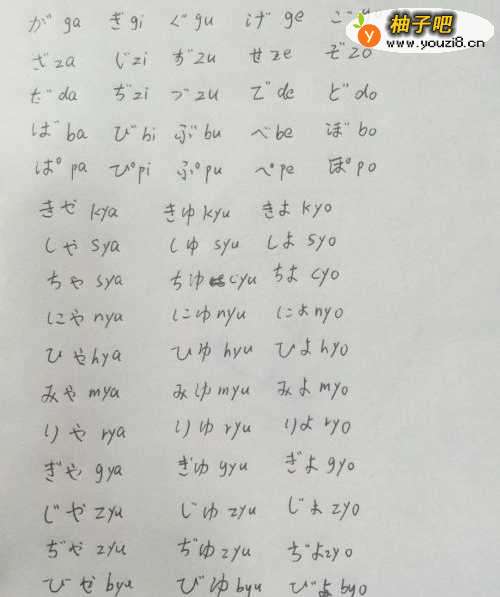 柚子吧
www.youzi8.cn
が ga ぎ gi ぐ gu げ ge
ざ za じ zi ず zu せ ze ぞ zo
だ da ぢ zi づ zu で de ど do
ば ba び bi ぶ bu べ be ぼ bo
ぱ pa ぴ pi ぷ pu ぺ pe ぽ po
きや kya きゆ kyu きよ kyo
しや sya しゆ syu しよ syo
ちや sya ちゆ cyu ちよ cyo
にや nya にゆ nyu によ nyo
ひや hya ひゆ hyu ひよ hyo
みや mya みゆ myu みよ myo
りや rya りゆ ryu りよ ryo
ぎや gya ぎゆ gyu ぎよ gyo
じや zyu じゆ zyu じよ zyo
ぢや zyu ぢゆ zyu ぢよ zyo
びせ byu びゆ byu びよ byo